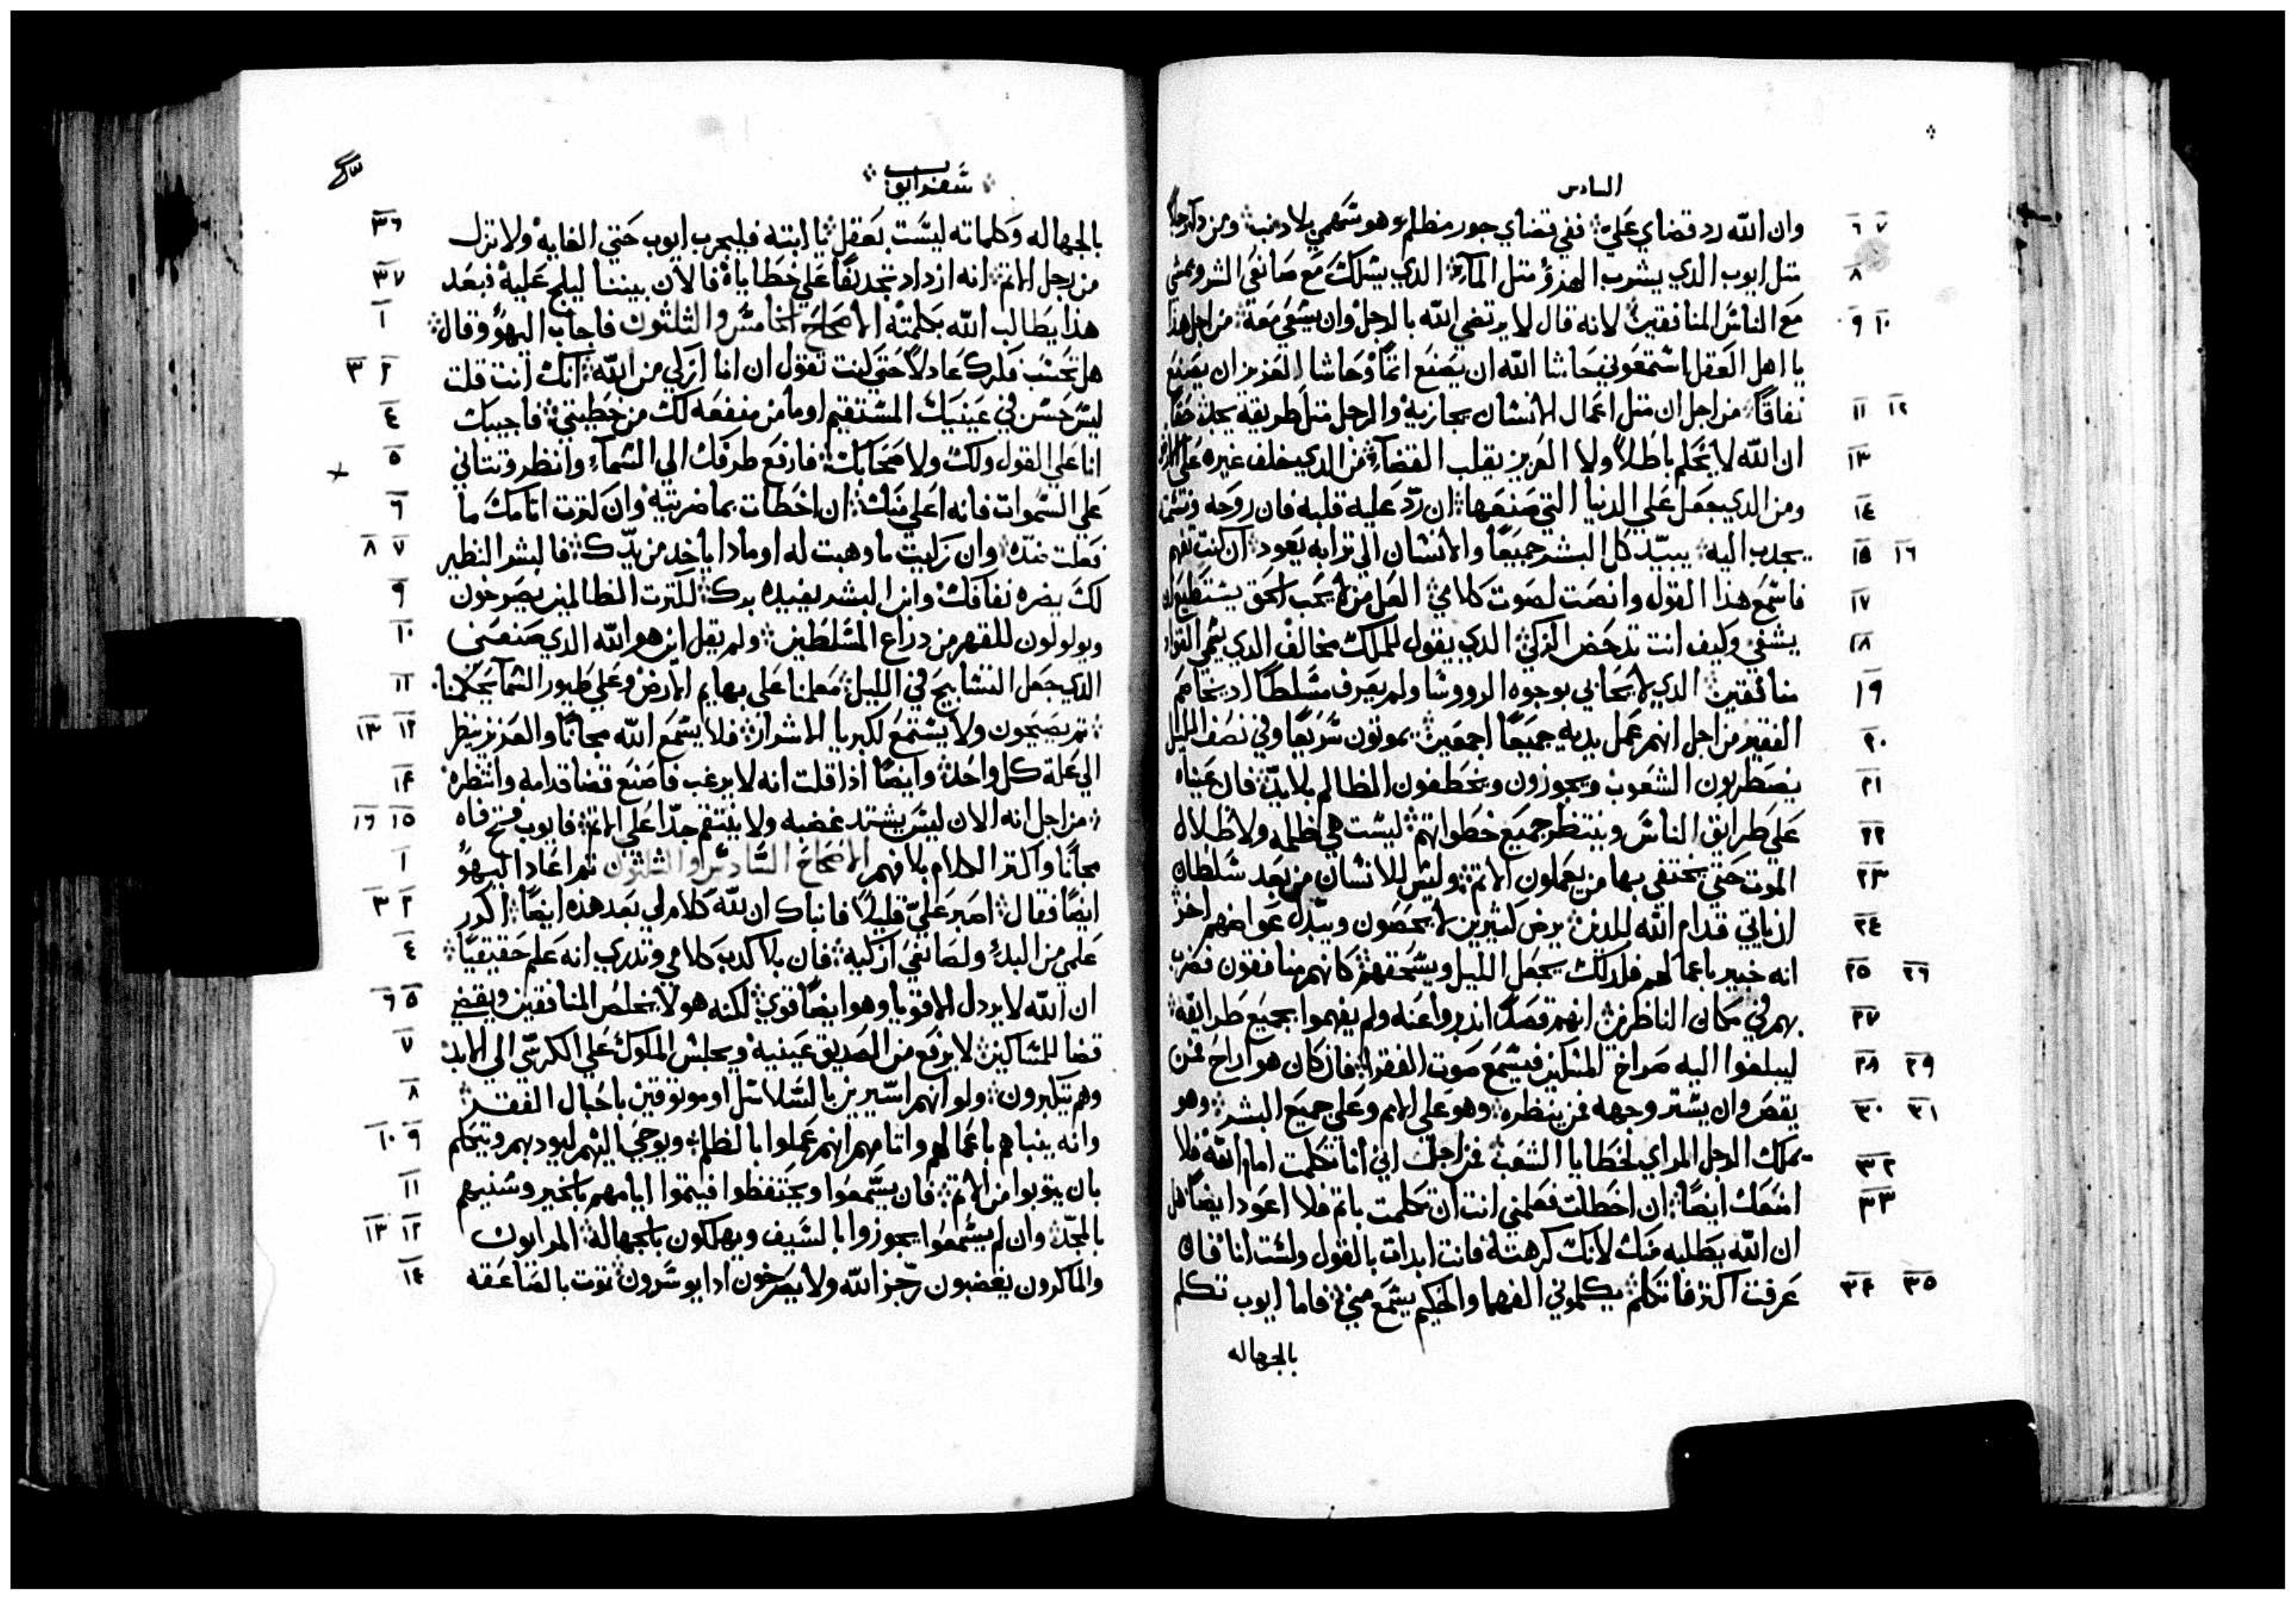 السادس
٦ ٧ وان الله رد قضاي عليّ ففي قضاي جور مظلم وهو سهمي بلا دنب ومن داك رجلاً
٨ متل ايوب الدي يشرب الهزؤ متل المآء الدي يسلك مع صانعي الشر ويمشي
٩ ١٠ مع الناس المنافقين لانه قال لا يرتضي الله بالرجل وان يسعي معه من اجل هذا
يا اهل العقل استمعوني حاشا الله ان يصنع اتمًا وحاشا العزيز ان يصنع
١١ ١٢ نفاقًا من اجل ان متل اعمال الانسان يجازيه والرجل متل طريقه يجد حقًا
١٣ ان الله لا يحكم باطلاً ولا العزيز يقلب القضآء من الدي يخلف غيره علي الارض
١٤ ومن الدي جعل علي الدنيا التي صنعها ان ردّ عليه قلبه فان روحه ونسمته
١٥ ١٦ يجدب اليه يبيد كل البشر جميعًا والانسان الي ترابه يعود ان كنت تفهم
١٧ فاسمع هذا القول وانصت لصوت كلامي العل من لا يحب الحق يستطيع ان
١٨ يشفي وكيف انت تدحض الزكي الدي يقول للملك مخالف الدي يسمي القواد
١٩ منافقين الدي لا يحابي بوجوه الرووسا ولم يعرف مسلطًا اد يخاصم
٢٠ الفقير من اجل انهم عمل يديه جميعًا اجمعين يموتون سريعًا وفي نصف الليل
٢١ يضطربون الشعوب ويجوزون ويخطفون الظالم بلا يد فان عيناه
٢٢ علي طرايق الناس وينتظر جميع خطواتهم ليست هي ظلمه ولا ظلال
٢٣ الموت حتي يختفي بها من يعملون الاتم وليس للانسان من بعد سلطان
٢٤ ان ياتي قدام الله للدين يرض كتيرين لا يحصون ويبدل عواضهم اخر
٢٥ ٢٦ انه خبير باعمالهم فلدلك يجعل الليل ويسحقهم كانهم منافقون ضرب
٢٧ بهم في مكان الناظرين انهم قصدًا اندبروا عنه ولم يفهموا بجميع طرايقه
٢٨ ٢٩ ليبلغوا اليه صراخ المسكين فيسمع صوت الفقرا فان كان هو اراح فمن
٣٠ ٣١ يقض وان يستر وجهه فمن ينظره وهو علي الامم وعلي جميع البشر وهو
٣٢ يملك الرجل المراي لخطايا الشعب فمن اجلك اني انا تكلمت امام الله فلا
٣٣ امنعك ايضًا ان اخطات فعلمني انت ان تكلمت باتم فلا اعود ايضًا هل
ان الله يطلبه منك لانك كرهته فانت ابدات بالقول ولست انا فان
٣٤ ٣٥ عرفت اكتر فاتكلم يكلموني الفهما والحكيم يسمع مني فاما ايوب تكلم
بالجهاله
سفر ايوب
٣٦ بالجهاله وكلماته ليست بعقل يا ابته فليجرب ايوب حتي الغايه ولا تزل
٣٧ من رجل الاتم انه ازداد تجديفًا علي خطاياه فالان بيننا ليلج عليه فبعد
١ هذا يطالب الله بكلمته الاصحاح الخامس والثلثون فاجاب اليهو وقال
٢ ٣ هل تحسب فكرك عادلاً حتي كنت تقول ان انا ازكي من الله انك انت قلت
٤ ليس حسن في عينيك المستقيم او ما من منفعه لك من خطيتي فاجيبك
٥ انا علي القول ولك ولاصحابك فارفع طرفك الي السمآء وانظر وتتاني
٦ علي السموات فانه اعلي منك ان اخطات بما ضريته وان كترت اتامك ما
٧ ٨ فعلت ضده وان زكيت ما وهبت له او مادا ياخد من يدك فالبشر النظير
٩ لك يضره نفاقك وابن البشر يفيده برك لكترت الظالمين يصرخون
١٠ ويولولون للقهر من دراع المسلطين ولم يقل اين هو الله الدي صنعني
١١ الدي جعل التسابيح في الليل معلمنا علي بهايم الارض وعلي طيور السما يحكمنا
١٢ ١٣ تم يصيحون ولا يستمع لكبريا الاشرار فلا يسمع الله مجانًا والعزيز ينظر
١٤ الي علة كل واحد وايضًا اذا قلت انه لا يرغب فاصنع قضا قدامه وانتظره
١٥ ١٦ من اجل انه الان ليس يشتد غضبه ولا ينتقم جدًا علي الاتم فايوب فتح فاه
١ مجانًا واكتر الكلام بلا فهم الاصحاح السادس والثلثون تم اعاد اليهو
٢ ٣ ايضًا فقال اصبر عليّ قليلاً فانباك ان لله كلام لي بعد هذه ايضًا اكور
٤ علمي من البدؤ ولصانعي ازكيه فان بلا كدب كلامي وتدري انه علم حقيقيًا
٥ ٦ ان الله لا يردل الاقويا وهو ايضًا قوي لكنه هو لا يخلص المنافقين ويقضي
٧ قضا للمساكين لا يرفع من الصديق عينيه ويجلس الملوك علي الكرسي الي الابد
٨ وهم يتكبرون ولو انهم اسيرين بالسلاسل او موتوقين باحبال الفقر
٩ ١٠ وانه ينباهم باعمالهم واتامهم انهم عملوا بالظلم ويوحي اليهم ليودبهم ويتكلم
١١ بان يتوبوا من الاتم فان يسمعوا ويحتفظوا فيتموا ايامهم بالخير وسنيهم
١٢ ١٣ بالمجد وان لم يسمعوا يجوزوا بالسيف ويهلكون بالجهالة المرايون
١٤ والماكرون يغضبون رجز الله ولا يصرخون ادا يوسرون تموت بالصاعقه